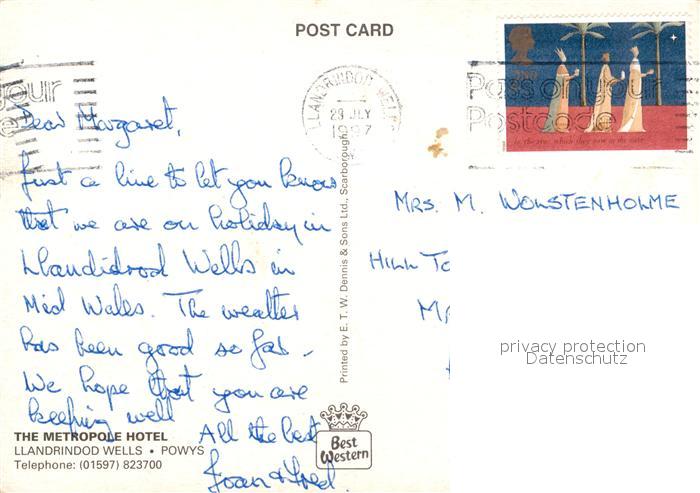 POST CARD
2nd
Pass on your
Postcode
LLANDRINDOD WELLS
29 JLY
1997
Dear Margaret,
Just a line to let you know
that we are on holiday in
Llandidrod Wells in
Mid Wales. The weather
has been good so far.
We hope that you are
keeping well
All the best
Joan & Fred.
THE METROPOLE HOTEL
LLANDRINDOD WELLS • POWYS
Telephone: (01597) 823700
Printed by E. T. W. Dennis & Sons Ltd., Scarborough
Best
Western
MRS. M. WOLSTENHOLME
HILL TO
privacy protection
Datenschutz